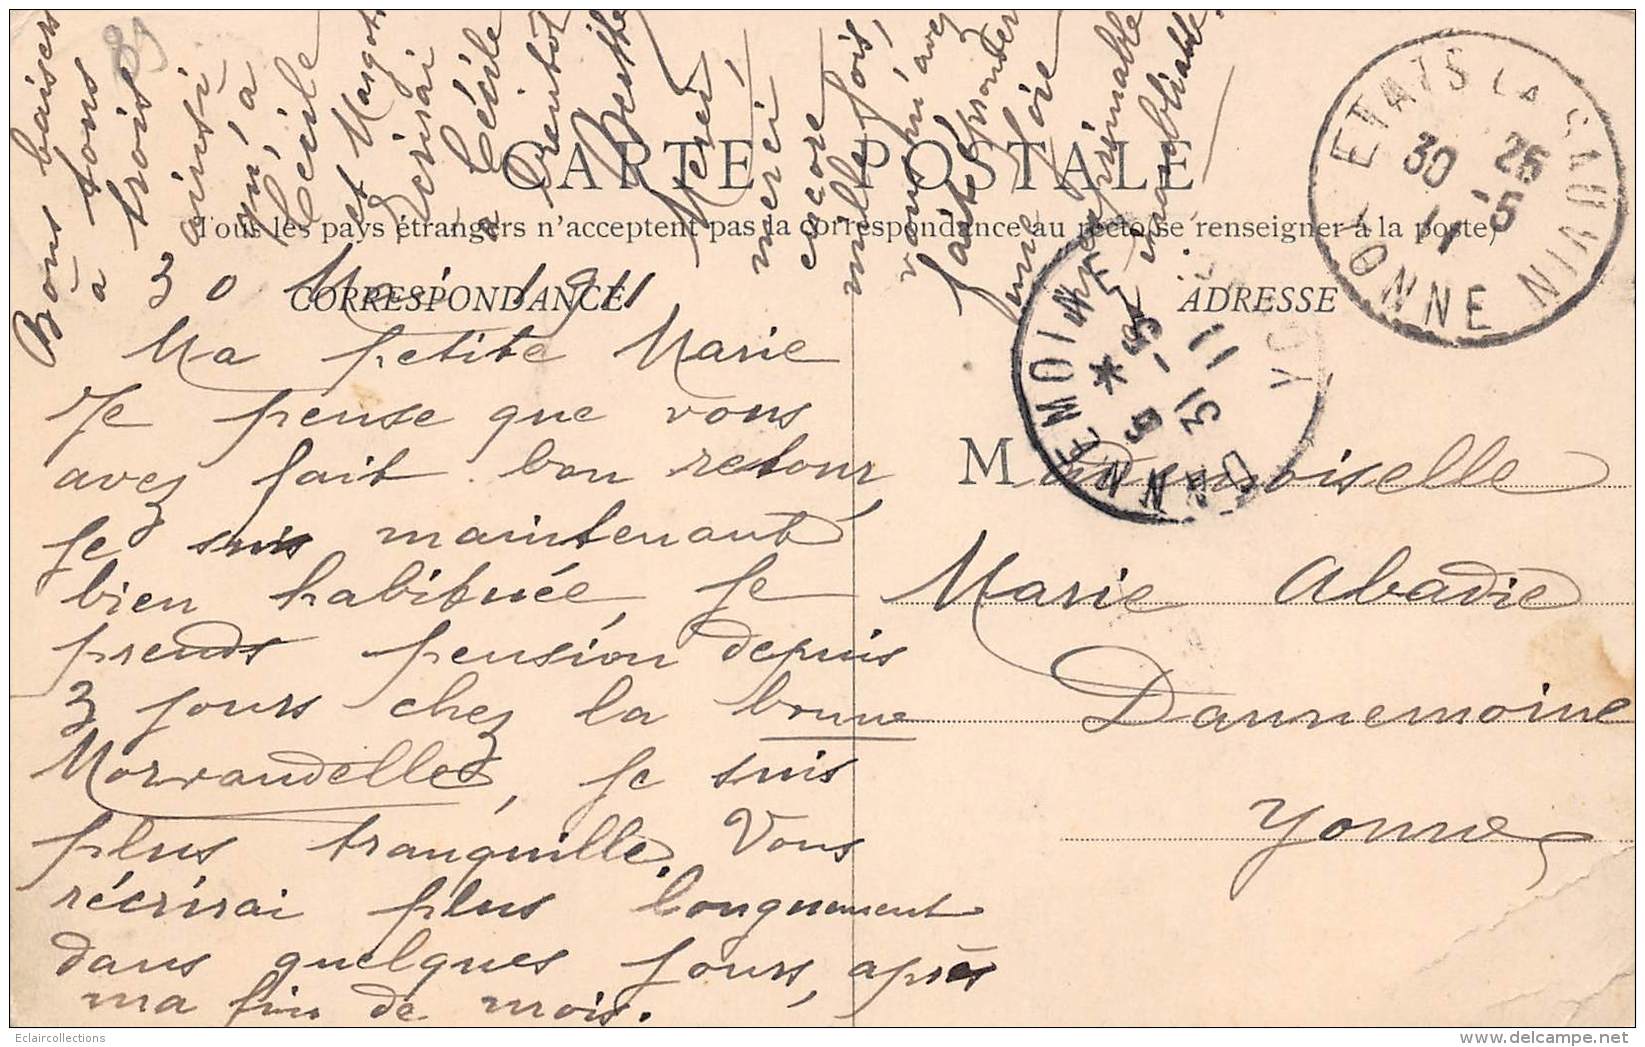 CARTE POSTALE
Tous les pays étrangers n'acceptent pas la correspondance au recto (se renseigner à la poste)
CORRESPONDANCE
ADRESSE
30 Mai 1911
Ma petite Marie
Je pense que vous
avez fait bon retour,
je suis maintenant
bien habituée, je
prends pension depuis
3 jours chez la brune
Morvandelle, je suis
plus tranquille. Vous
récrirai plus longuement
dans quelques jours, après
ma fin de mois.
Bons baisers
à tous
trois
ainsi
qu'à
Cécile
et Margot
Ecrirai
à Cécile
bientôt
Berthe
Merci
merci
encore
mille fois,
vous m'avez
fait
une joie
inexprimable
inoubliable.
Mademoiselle
Marie Abadie
Dannemoine
Yonne
ETAIS LA SAUVIN
YONNE
30 - 5
11
DANNEMOINE
YONNE
31 - 5
11
89
Eclaircollections
delcampe.net